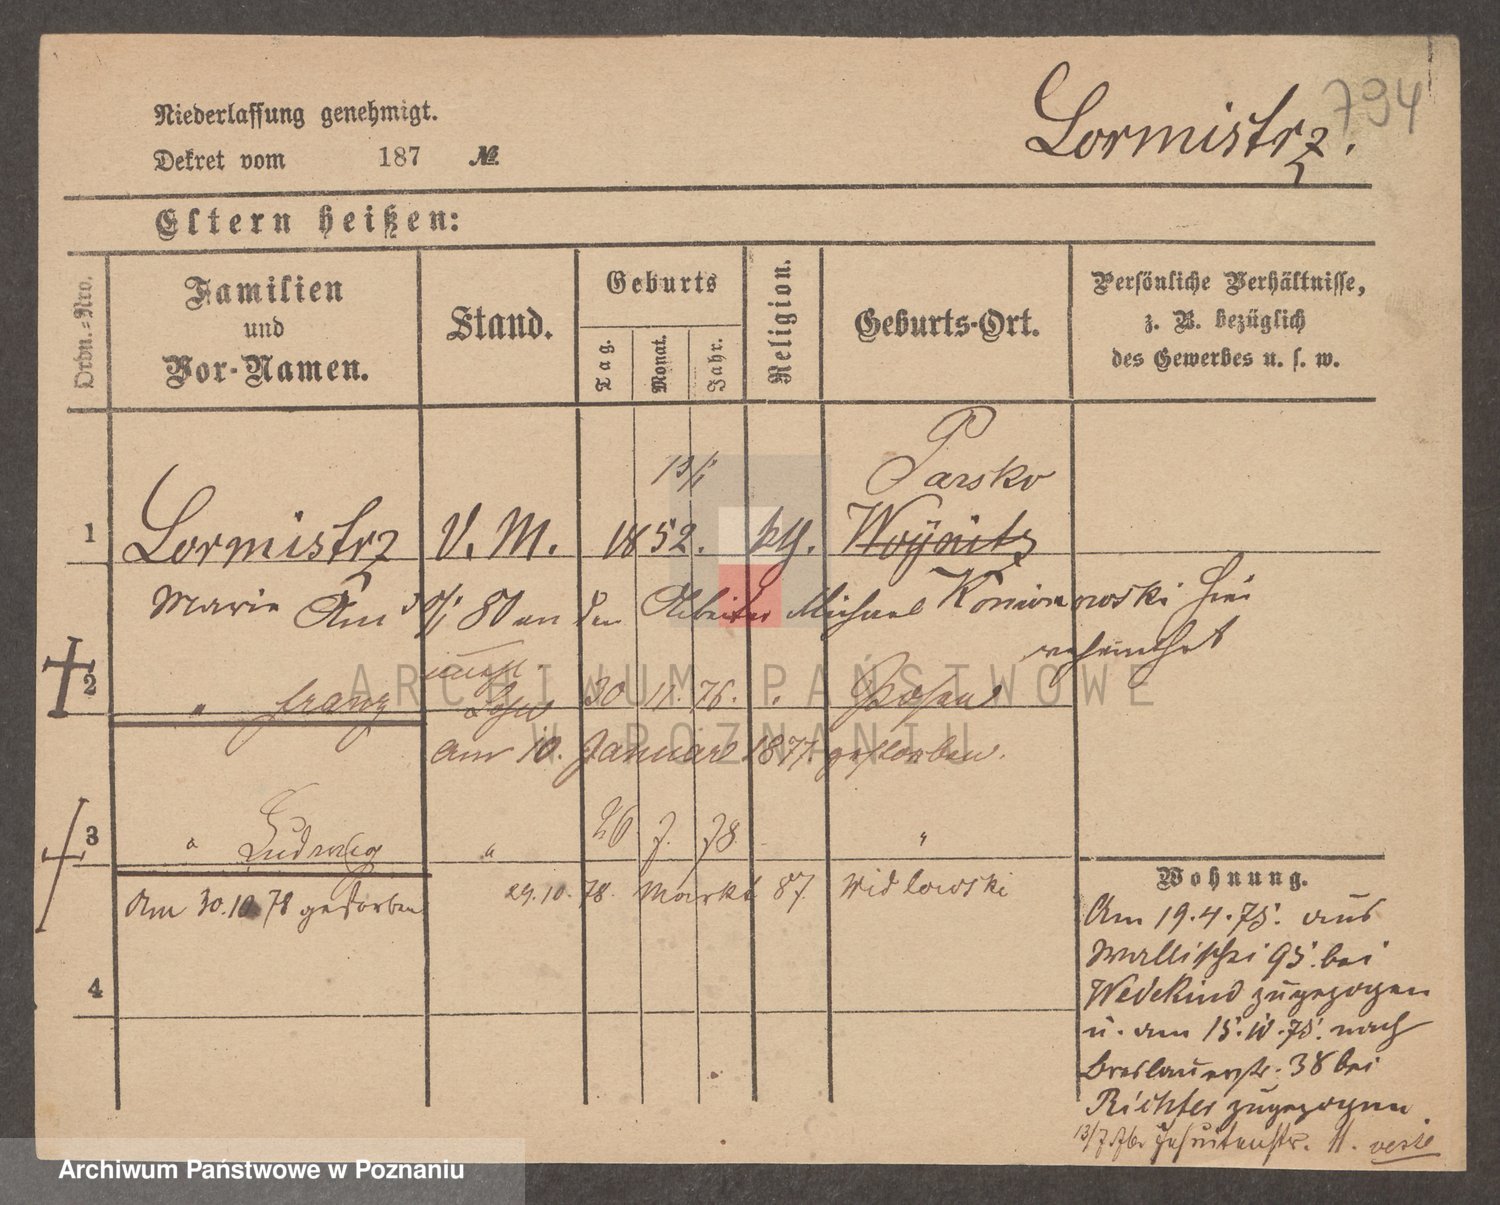 794
Niederlassung genehmigt.
Lormistrz.
Dekret vom 187 №
Eltern heißen:
Ordn.=Nro.
Familien und Vor-Namen.
Stand.
Geburts
Tag.
Monat.
Jahr.
Religion.
Geburts-Ort.
Persönliche Verhältnisse,
z. B. bezüglich
des Gewerbes u. s. w.
13/1
Parsko
1 Lormistrz V. M. 1852. Woynitz
Marie Am 80 an den Arbeiter Michael hier
verheirathet
unehl.
2 " Franz Sohn 30 11. 76. Posen
am 10. Januar 1877 gestorben.
3 " Ludwig " 26 7. 78. "
Am 30.10.78 gestorben 29.10.78. Markt 87. Widlowski
4
Wohnung.
Am 19.4.75. aus
Wallischei 95. bei
Wedekind zugezogen
u. am 15. 75. nach
Breslauerstr. 38 bei
Richter zugezogen.
13/7 76. Jesuitenstr. 11.
ARCHIWUM PAŃSTWOWE
W POZNANIU
Archiwum Państwowe w Poznaniu